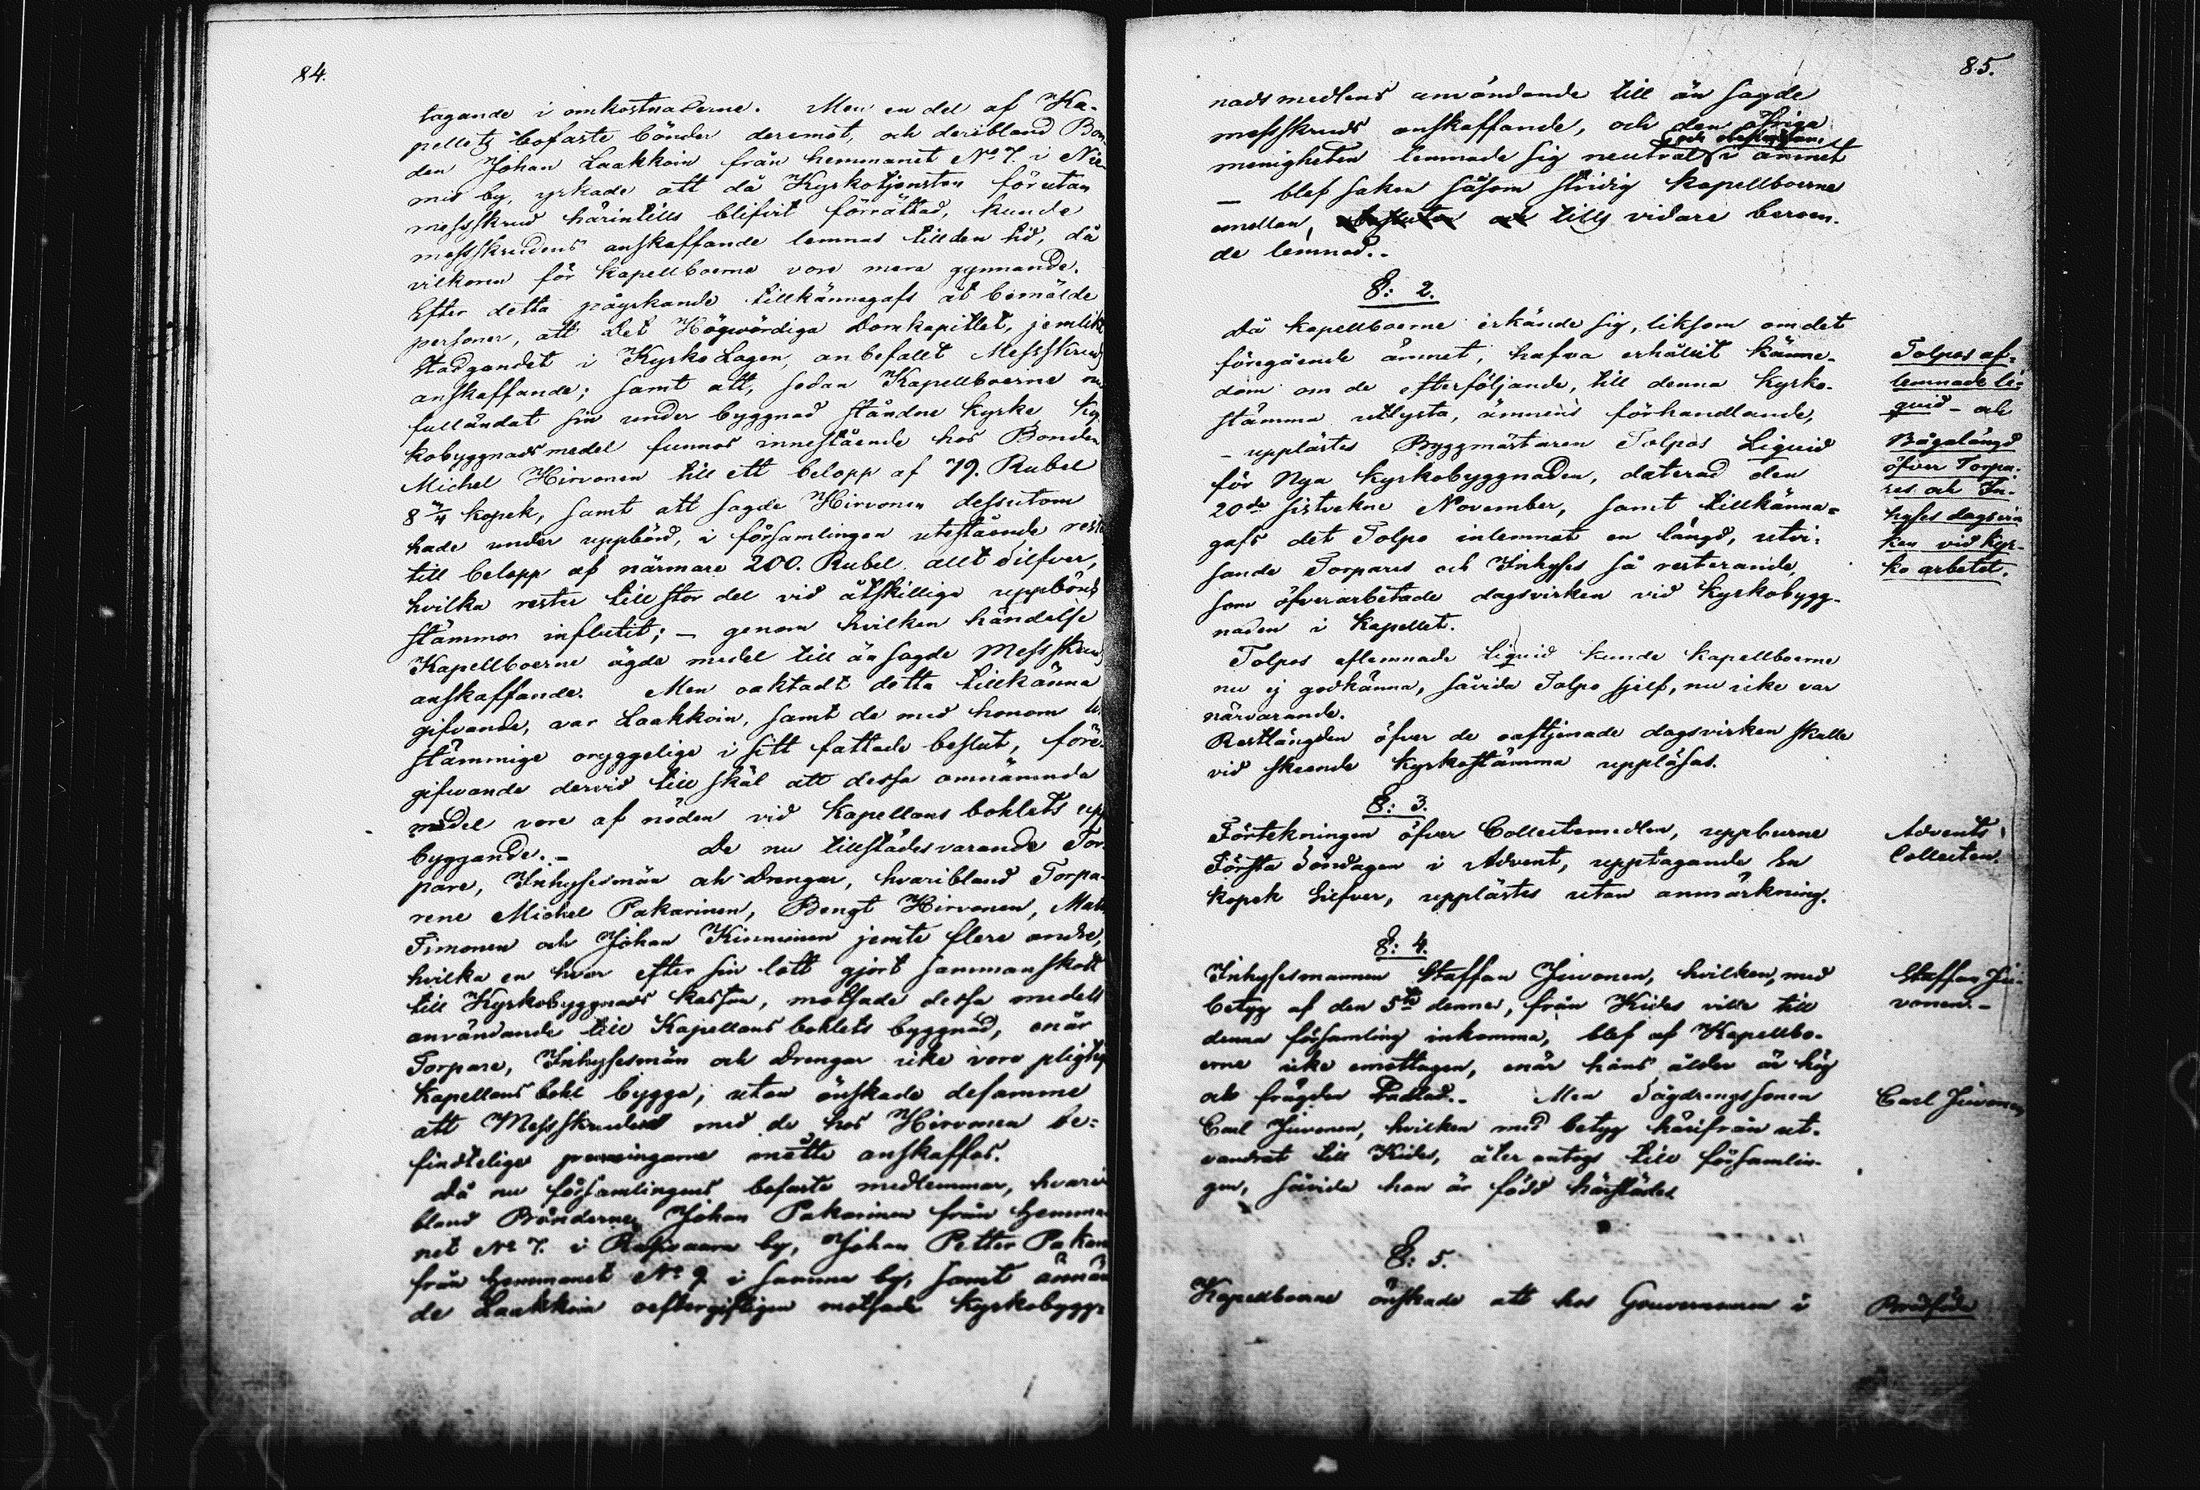 84.
tagande i omkostnaderne. Men en del af Ka-
pellets bofaste bönder deremot, och deribland Bon
den Johan Laakkoin från hemmanet No 7. i Nie
mis by, yrkade att då Kyrkotjensten förutan
messskrud härintills blifvit förrättad, kunde
messskrudens anskaffande lemnas till den tid, då
vilkoren för Kapellboerne vore mera gynnande.
Efter detta påyrkande tillkännagafs åt bemälde
personer, att det Högvördiga Domkapitlet, jemlikt
stadgandet i Kyrko Lagen, anbefallt Messskruds
anskaffande; samt att, sedan Kapellboerne nu
fulländat sin under byggnad ståndne kyrka Kyr
kobyggnadsmedel funnos innestående hos Bonden
Michel Hirvonen till ett belopp af 79. Rubel
8 3/4 kopek, samt att sagde Hirvonen dessutom
hade under uppbörd, i församlingen utestående rester
till belopp af närmare 200. Rubel allt Silfver,
hvilka rester till stor del vid åtskillige uppbörds
stämmor influtit; – genom hvilken händelse
Kapellboerne ägde medel till än sagde Messskruds
anskaffande. Men oaktadt detta tillkänna
gifvande, var Laakkoin, samt de med honom lik
stämmige oryggelige i sitt fattade beslut, före-
gifvande dervid till skäl att dessa omnämnda
medel vore af nöden vid Kapellans bohlets upp
byggande. – De nu tillstädesvarande Tor-
pare, Inhysesmän och Drengar, hvaribland Torpa-
rene Michel Pakarinen, Bengt Hirvonen, Matts
Timonen och Johan Kinnunen jemte flere andre,
hvilka en hvar efter sin lott gjort sammanskott
till Kyrkobyggnads kassan, motsade dessa medels
användande till Kapellans bohlets byggnad, enär
Torpare, Inhysesmän och Drengar icke voro pligtige
Kapellans bohl bygga, utan önskade desamme
att Messskruden med de hos Hirvonen be-
findtelige penningarne måtte anskaffas.
Då nu församlingens bofaste medlemmar, hvari
bland Bönderne Johan Pakarinen från Hemma
net No 7. i by, Johan Petter Pakari
från Hemmanet No 9 i samma by, samt ännäm
de Laakkoin oeftergifligen motsade Kyrkobygg-
85.
nadsmedlens användande till än sagde
messskruds anskaffande, och den öfriga
menigheten lemnade sig neutral i ämnet
– blef saken såsom stridig kapellboerne
emellan, och tills vidare beroen-
de lemnad. –
§: 2.
Då kapellboerne erkände sig, liksom om det
föregående ämnet, hafva erhållit känne-
dom om de efterföljande, till denna kyrko-
stämma utlysta, ämnens förhandlande,
– upplästes Byggmästaren Tolpos Liquid
för Nya kyrkobyggnaden, daterad den
20de sistvekne November, samt tillkänna-
gafs det Tolpo inlemnat en längd, utvi-
sande Torpares och Inhyses så resterande,
som öfverarbetade dagsvirken vid kyrkobygg-
naden i kapellet.
Tolpos aflemnade liquid kunde kapellboerne
nu ej godkänna, såvida Tolpo sjelf, nu icke var
närvarande.
Restlängden öfver de oaftjenade dagsvirken skulle
vid skeende kyrkostämma uppläsas.
Tolpos af-
lemnade li-
quid – och
Bågalängd
öfver Torpa-
res och In-
hyses dagsvir
ken vid kyr-
ko arbetet.
§: 3.
Förtekningen öfver Collectemedlen, uppburne
Första Söndagen i Advent, upptagande En
kopek Silfver, upplästes utan anmärkning.
Advents
Collecten.
§: 4.
Inhysesmannen Staffan Juvonen, hvilken, med
betyg af den 5te dennes, från Kides ville till
denna församling inkomma, blef af Kapellbo-
erne icke emottagen, enär hans ålder är hög
och frägden tadlad. – Men Sågdrengssonen
Carl Juvonen, hvilken med betyg härifrån ut-
vandrat till Kides, åter antogs till församlin-
gen, såvida han är född härstädes.
Staffan Ju-
vonen. –
Carl Juvonen
§: 5.
Kapellboerne önskade att hos Gouverneuren i
Brödföda